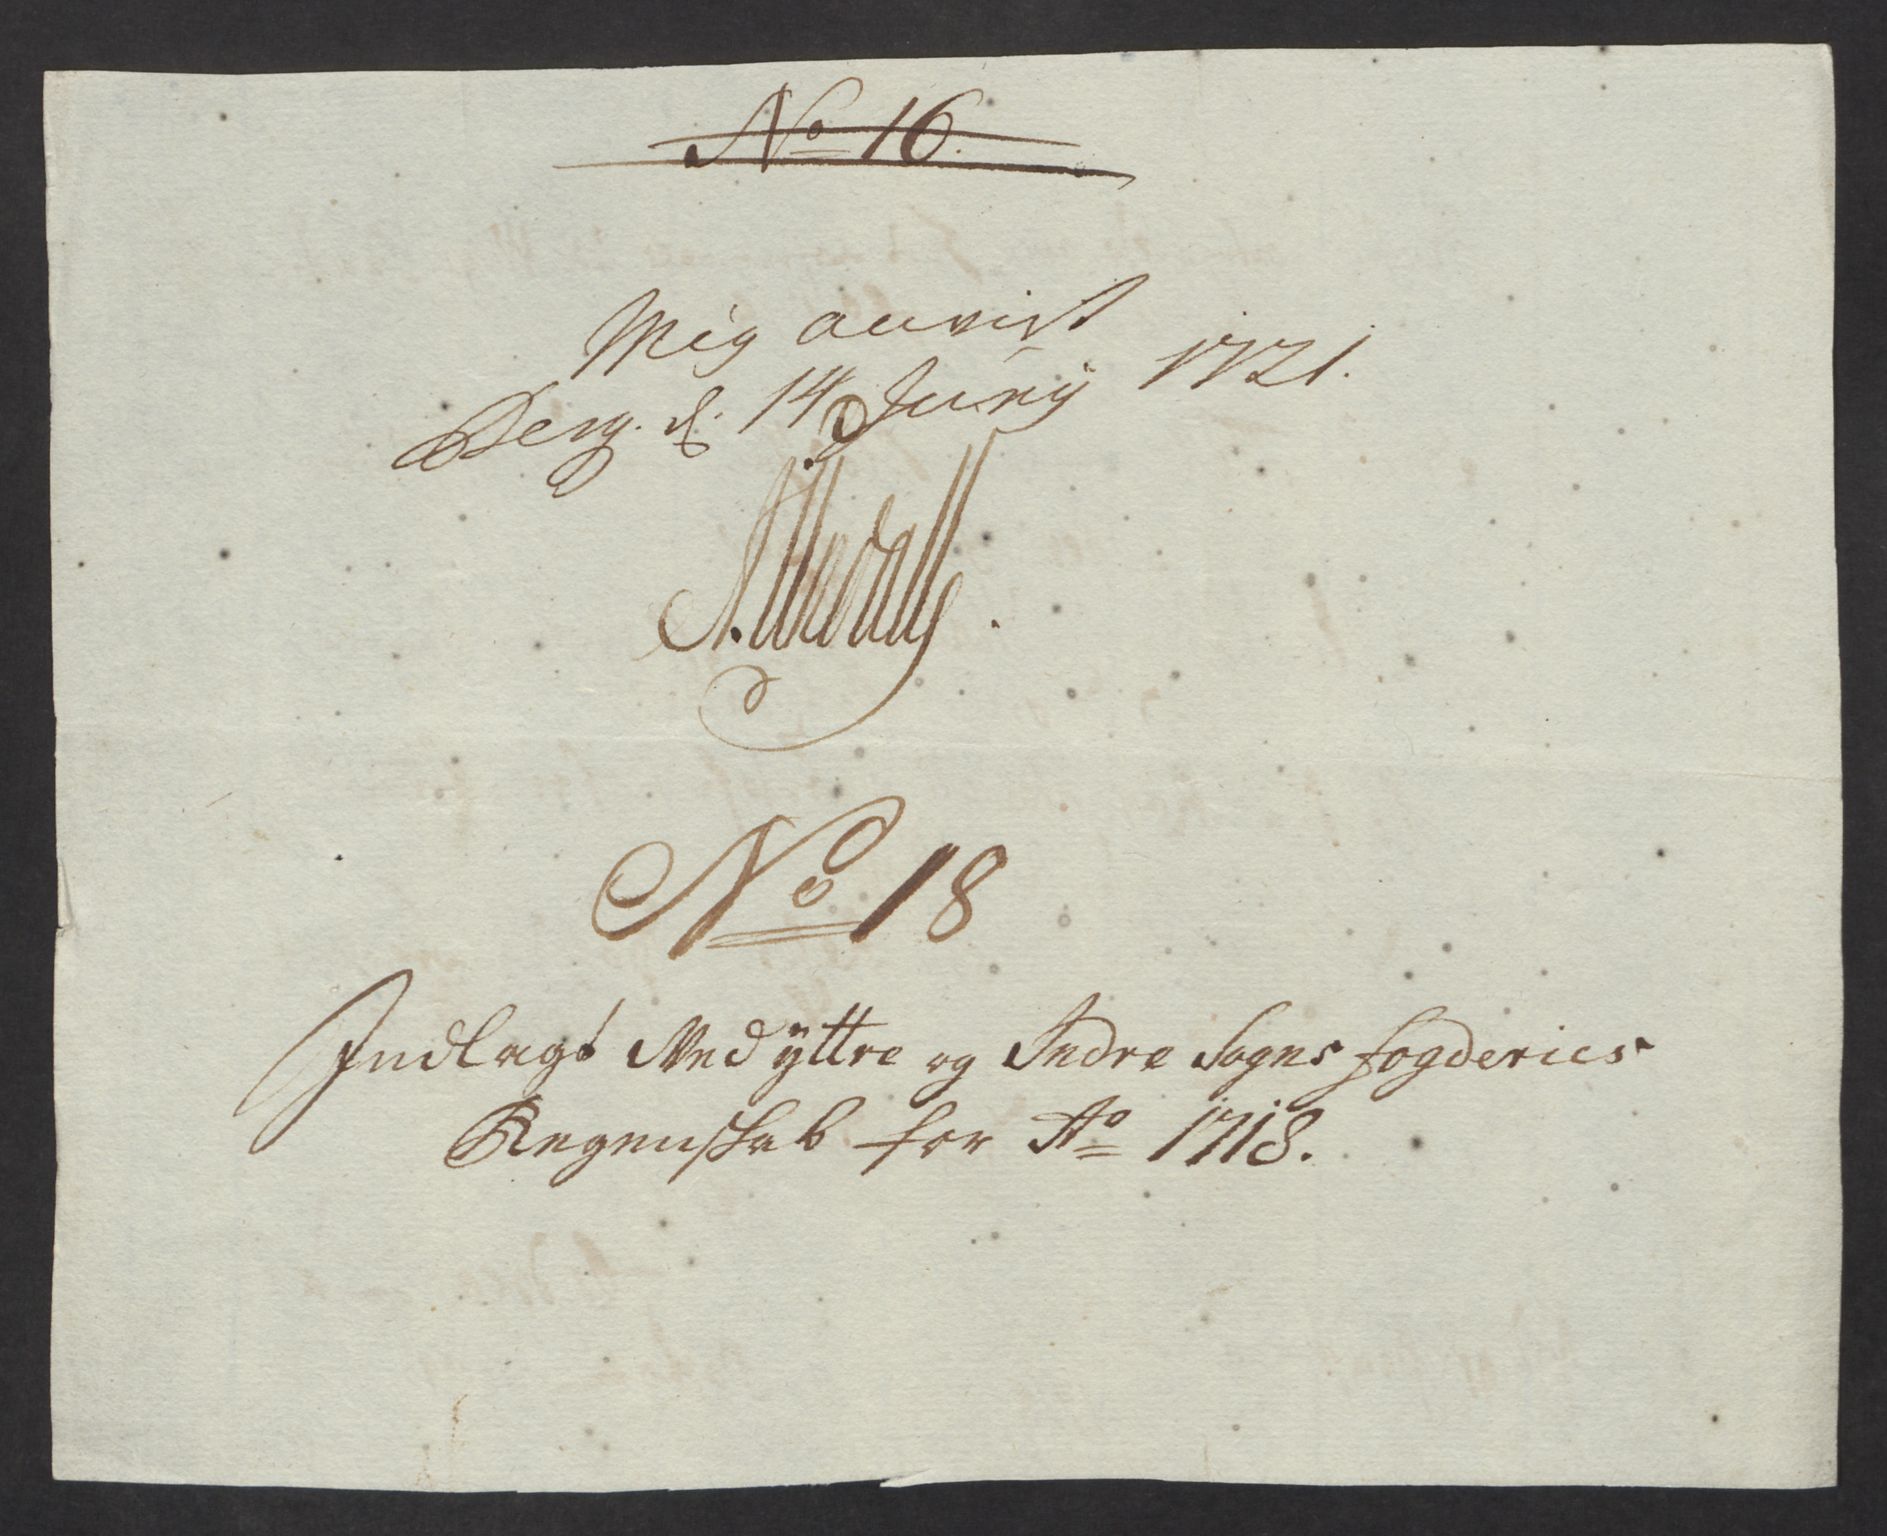 No 16.
Mig anvist
Berg. d. 14 Junÿ 1721.
No 18
Indlagt Ved ÿttre og Indre Sogns fogderies
Regenskab for Ao 1718.